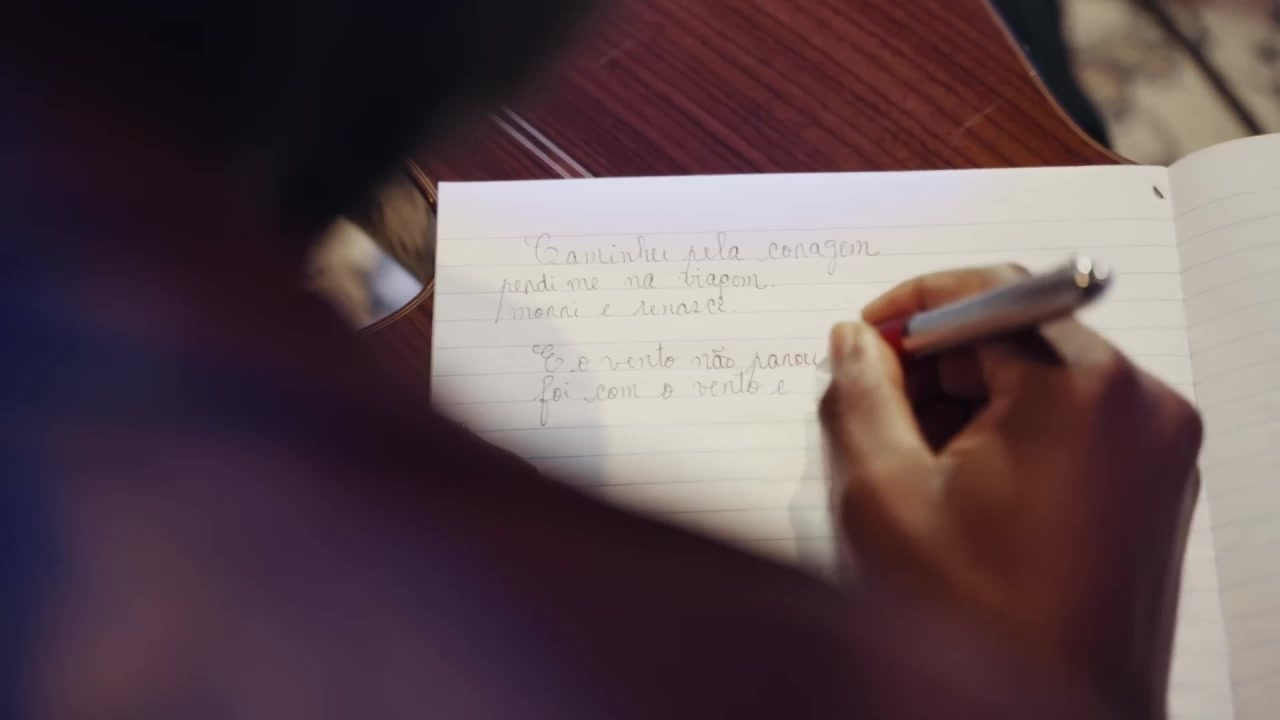 Caminhei pela coragem
perdi me na viagem.
morri e renasci.
E o vento não parou
foi com o vento e